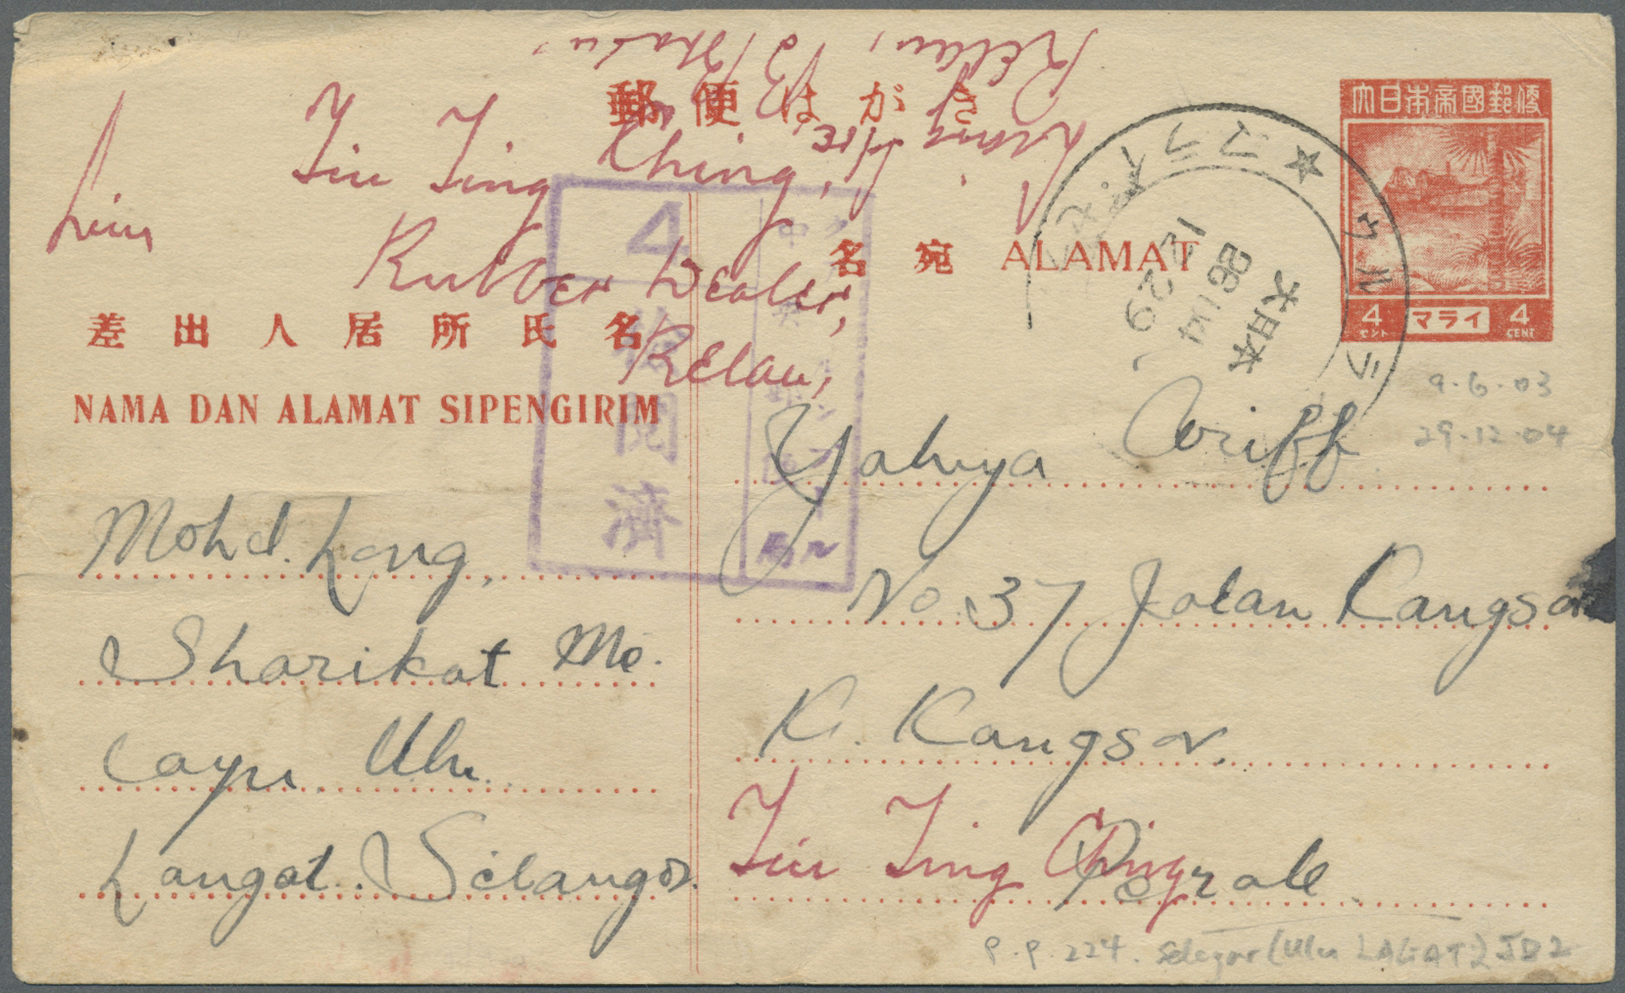 郵便はがき
大日本帝國郵便
4 マライ 4
セント CENT
Lim
Yiu Ting Ching,
Rubber Dealer,
Relau,
Relau,
名宛 ALAMAT
差出人居所氏名
NAMA DAN ALAMAT SIPENGIRIM
4
檢閲濟
マライ
大日本
12 29
9.6.03
29.12.04
Yahya Ariff
No. 37 Jalan Kangsar
K. Kangsar.
Perak
Mohd. Long,
Sharikat Me.
Cayu Ulu
Langat. Selangor.
Yiu Ting Ching
P.P. 224. Selangor (Ulu LANGAT) JD2